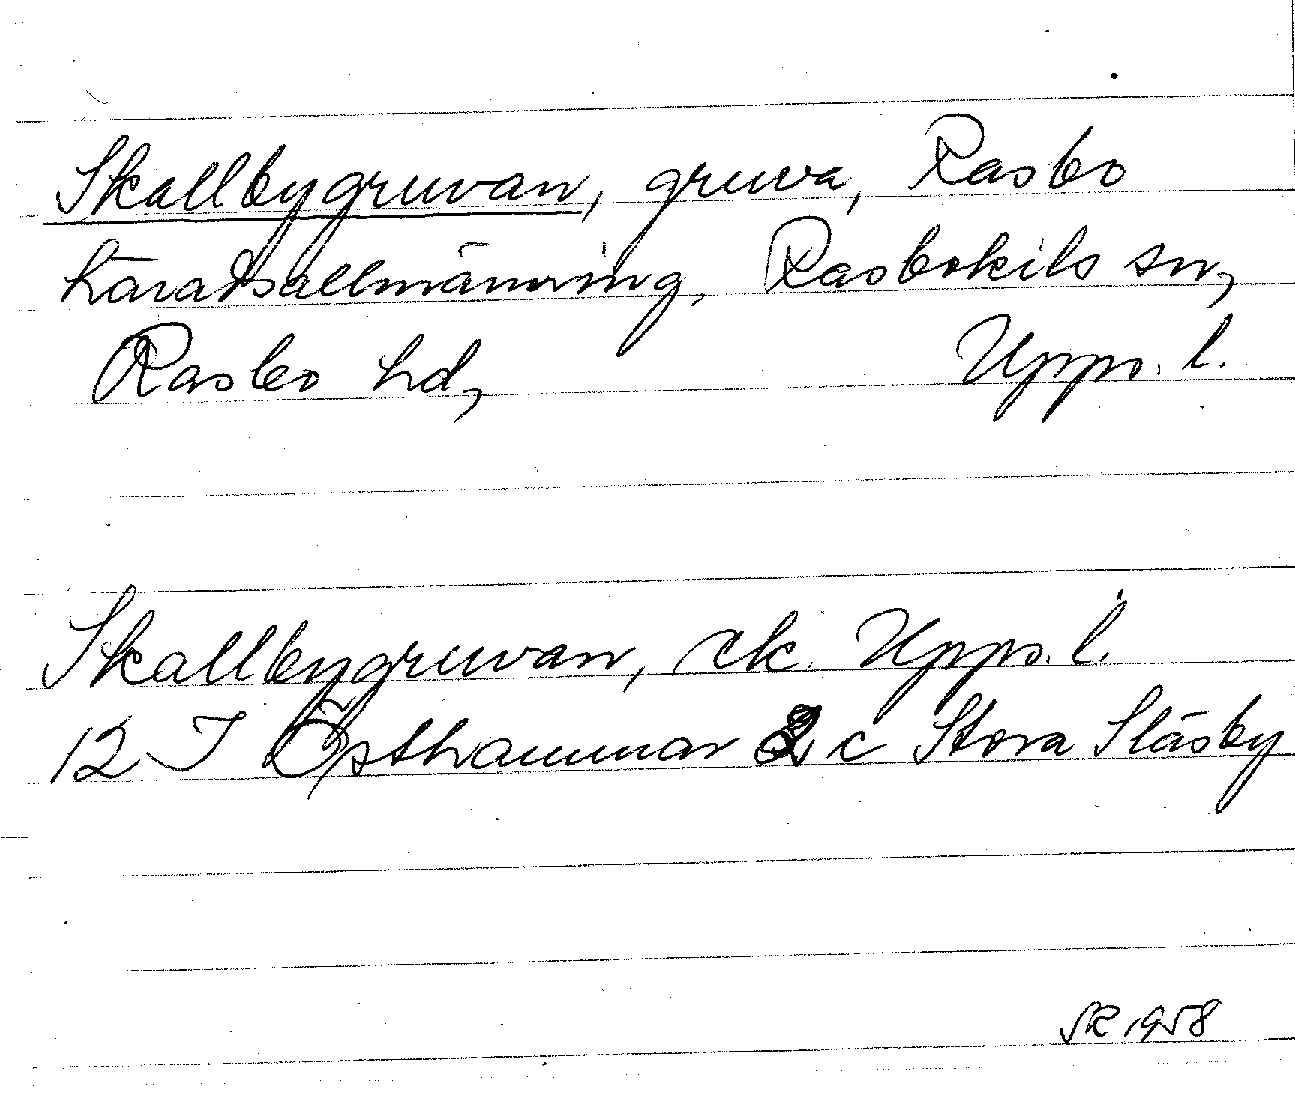 Skallbygruvan, gruva, Rasbo
häradsallmänning, Rasbokils sn,
Rasbo hd, Upps. l.
Skallbygruvan, ek. Upps. l.
12 I Östhammar 2 c Stora Släsby
SR 1958